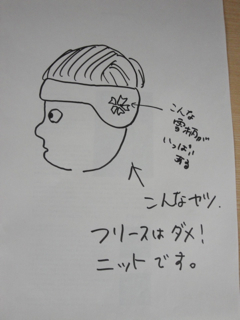 こんな
雪柄が
いっぱい
する
こんなヤツ。
フリースはダメ!
ニットです。